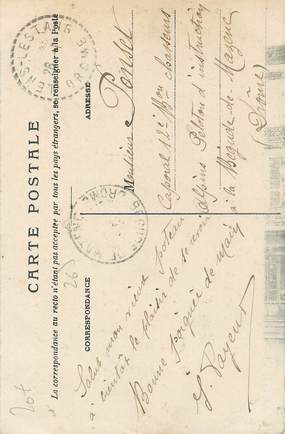 CARTE POSTALE
La correspondance au recto n'étant pas acceptée par tous les pays étrangers, se renseigner à la Poste
CORRESPONDANCE
ADRESSE
Salut mon vieux poteau
à bientôt le plaisir de te revoir
Bonne poignée de main
J. Payeur
Monsieur Poncet
Caporal 12e Bon chasseurs
alpins Peloton d'instruction
à la Bégude-de-Mazenc
(Drôme)
26
DROME